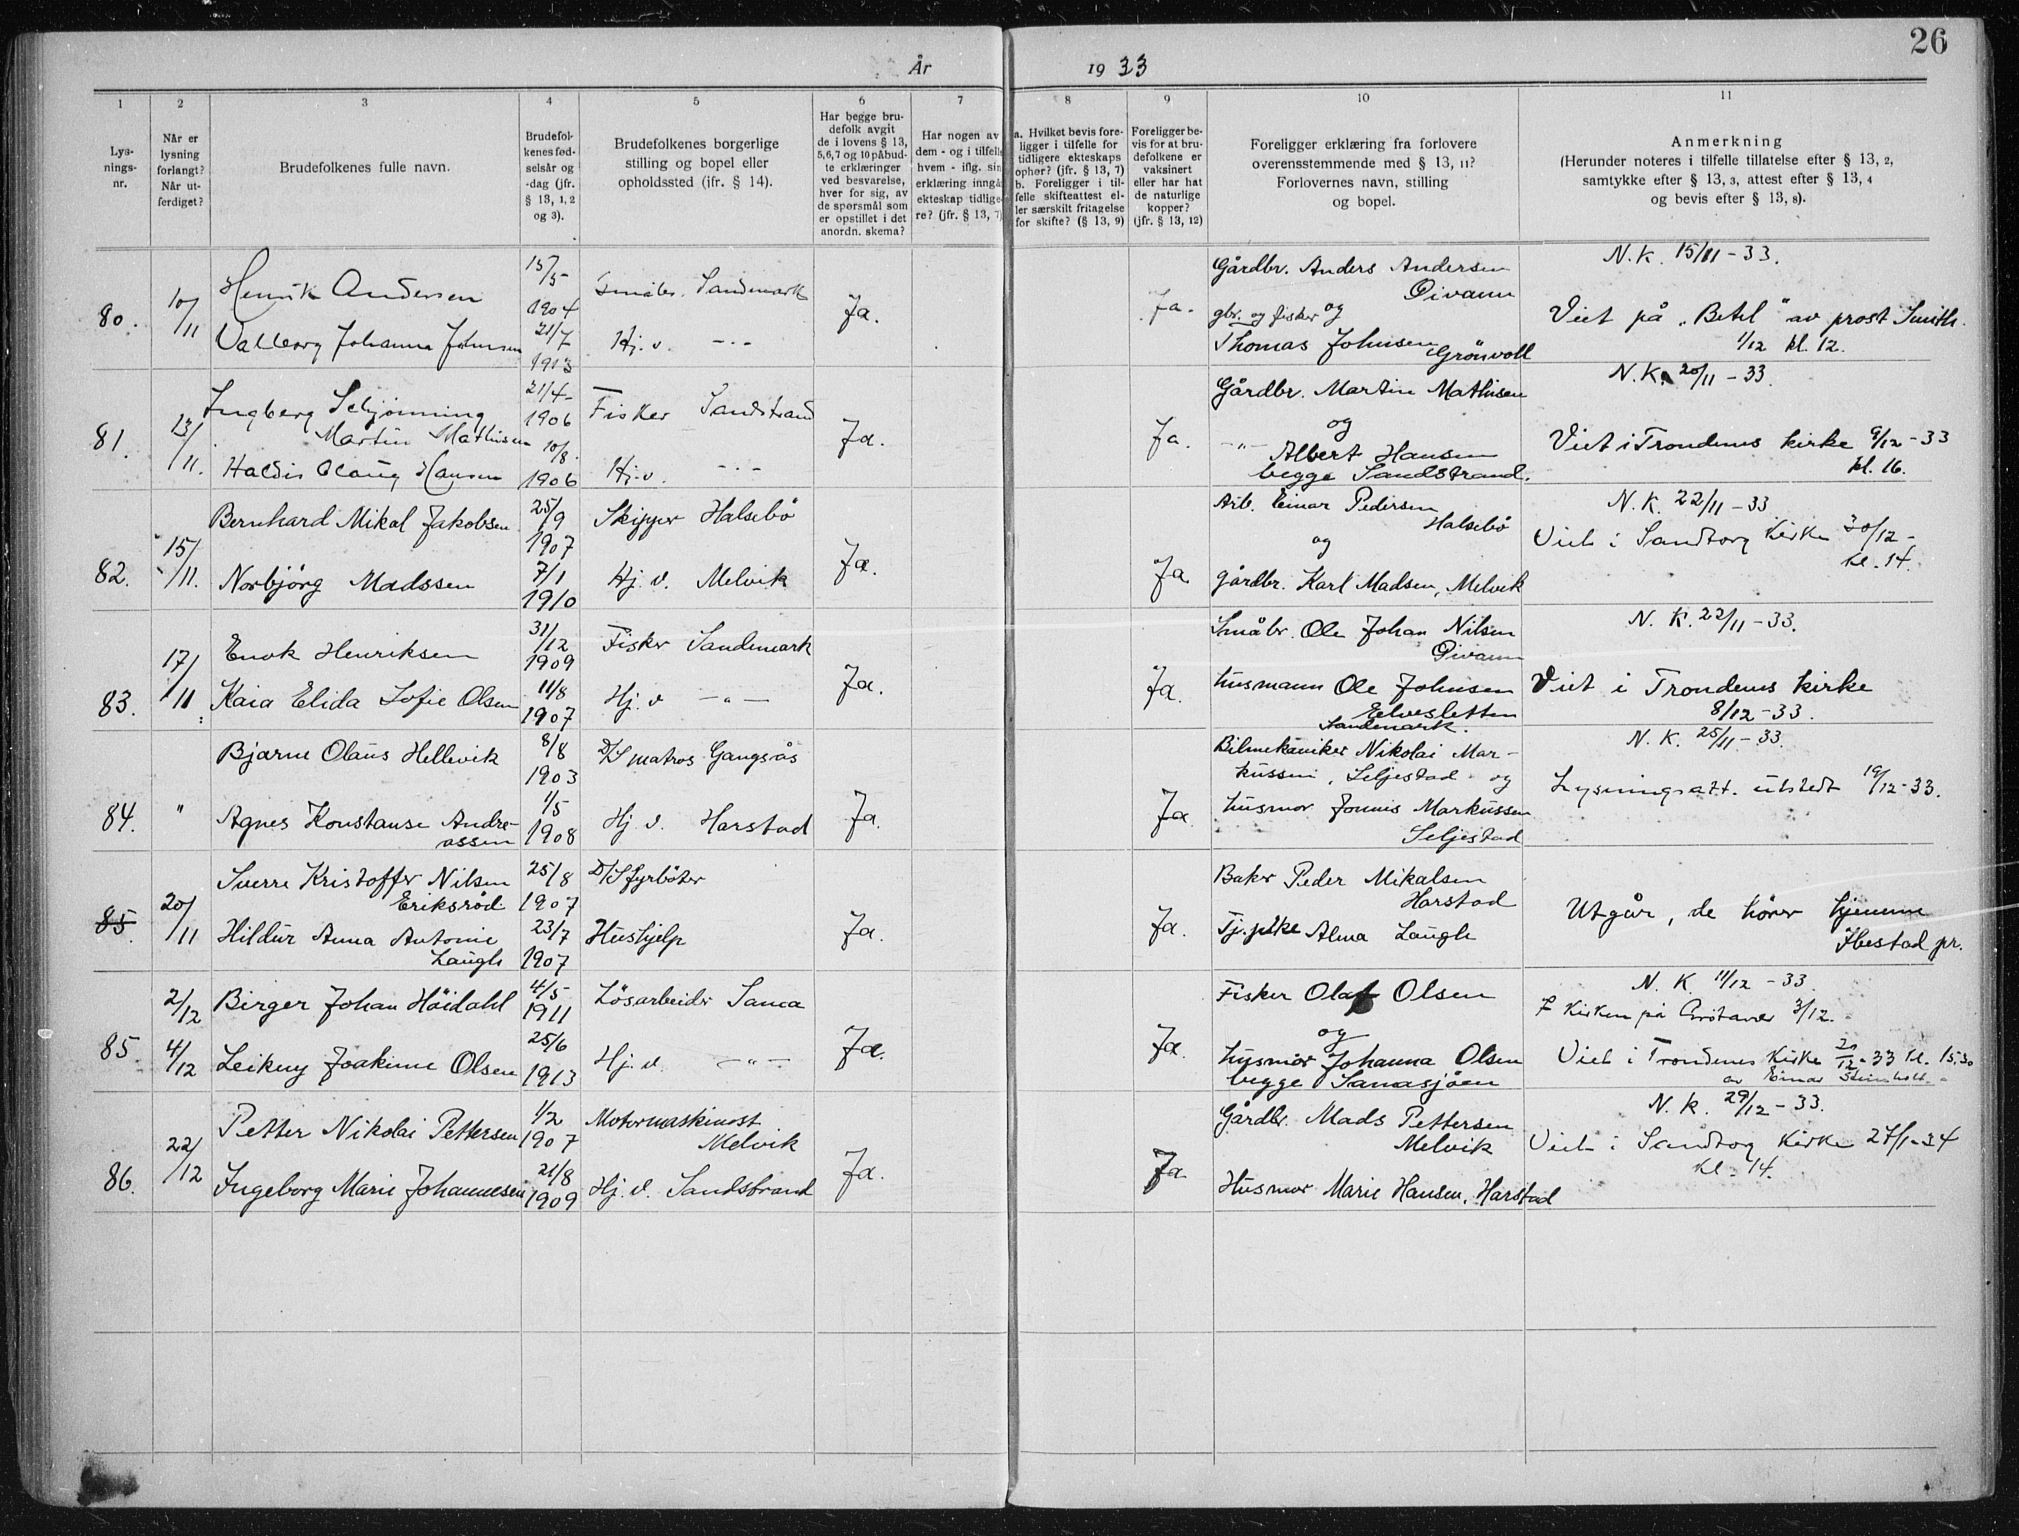 26
År 1933
1 2 3 4 5 6 7 8 9 10 11
Lys-
nings-
nr.
Når er
lysning
forlangt?
Når ut-
ferdiget?
Brudefolkenes fulle navn.
Brudefol-
kenes fød-
selsår og
-dag (jfr.
§ 13, 1, 2
og 3).
Brudefolkenes borgerlige
stilling og bopel eller
opholdssted (ifr. § 14).
Har begge bru-
defolk avgit
de i lovens § 13,
5,6,7 og 10 påbud-
te erklæringer
ved besvarelse,
hver for sig, av
de spørsmål som
er opstillet i det
anordn. skema?
Har nogen av
dem - og i tilfelle
hvem - iflg. sin
erklæring inngå
ekteskap tidlige-
re? (jfr. § 13, 7)
a. Hvilket bevis fore-
ligger i tilfelle for
tidligere ekteskaps
ophør? (jfr. § 13, 7)
b. Foreligger i til-
felle skifteattest el-
ler særskilt fritagelse
for skifte? (§ 13, 9)
Foreligger be-
vis for at bru-
defolkene er
vaksinert
eller har hat
de naturlige
kopper?
(jfr. § 13, 12)
Foreligger erklæring fra forlovere
overensstemmende med § 13, 11?
Forlovernes navn, stilling
og bopel.
Anmerkning
(Herunder noteres i tilfelle tillatelse efter § 13, 2,
samtykke efter § 13, 3, attest efter § 13, 4
og bevis efter § 13, 8).
80. 10/11
Henrik Andersen 15/5 1904 Småbr. Sandemark
Valborg Johanna Johnsen 21/7 1913 Hj. v. -"-
Ja. Ja.
Gårdbr. Anders Andersen
og
gbr. og fisker
Thomas Johnsen
Grönvoll
N.K. 15/11-33.
Viet på "Betel" av prost Smith.
1/12 kl. 12.
81. 13/11.
Ingberg Schjønning
Martin Mathisen 21/4-1906 Fisker Sandstrand
Haldis Olaug Hansen 10/8. 1906 Hj.v. -"-
Ja. Ja.
Gårdbr. Martin Mathisen
og
-"- Albert Hansen
begge Sandstrand.
N.K. 20/11-33.
Viet i Trondenes kirke 9/12-33
kl. 16.
82. 15/11.
Bernhard Mikal Jakobsen 25/9 1907 Skipper Halsebö
Norbjörg Madssen 7/1 1910 Hj. v. Melvik
Ja. Ja
Arb. Einar Pedersen
Halsebö
og
gårdbr. Karl Madsen, Melvik
N.K. 22/11-33
Viet i Sandtorg Kirke 30/12-
kl. 14.
83. 17/11
Enok Henriksen 31/12 1909 Fisker Sandemark
Kaia Elida Sofie Olsen 11/8 1907 Hj. v -"-
Ja. Ja.
Småbr. Ole Johan Nilsen
husmann Ole Johnsen
Elvesletten
Sandemark.
N.K. 22/11-33.
Viet i Trondenes kirke
8/12-33.
84. "
Bjarne Olaus Hellevik 8/8 1903 D/S matros Gangsås
Agnes Konstanse Andre-
assen 1/5 1908 Hj. v. Harstad
Ja. Ja.
Bilmekaniker Nikolai Mar-
kussen, Seljestad og
husmor Jonnis Markussen
Seljestad
N.K. 25/11-33.
Lysningsatt. utstedt 19/12-33.
85. 20/11
Sverre Kristoffer Nilsen
Eriksröd 25/8 1907 D/S fyrböter
Hildur Anna Antonie
Laugh 23/7 1907 Hushjelp
Ja. Ja.
Baker Peder Mikalsen
Harstad
Tj.pike Alma Laugh
Utgår, de hörer hjemme
Ibestad pr.
85. 2/12 4/12
Birger Johan Höidahl 4/5 1911 Lösarbeider Sama
Leikny Joakime Olsen 25/6 1913 Hj. v. -"-
Ja. Ja.
Fisker Olaf Olsen
og
husmor Johanna Olsen
begge Samasjöen
N.K. 11/12-33.
F Kirken på Grötavær 3/12.
Viet i Trondenes Kirke 20/12-33 kl. 15.30
av Einar
86. 22/12
Petter Nikolai Pettersen 1/2 1907 Motormaskinist
Melvik
Ingeborg Marie Johannesen 21/8 1909 Hj. v. Sandstrand
Ja. Ja.
Gårdbr. Mads Pettersen
Melvik
Husmor Marie Hansen. Harstad
N.K. 29/12-33.
Viet i Sandtorg Kirke 27/1-34
kl. 14.